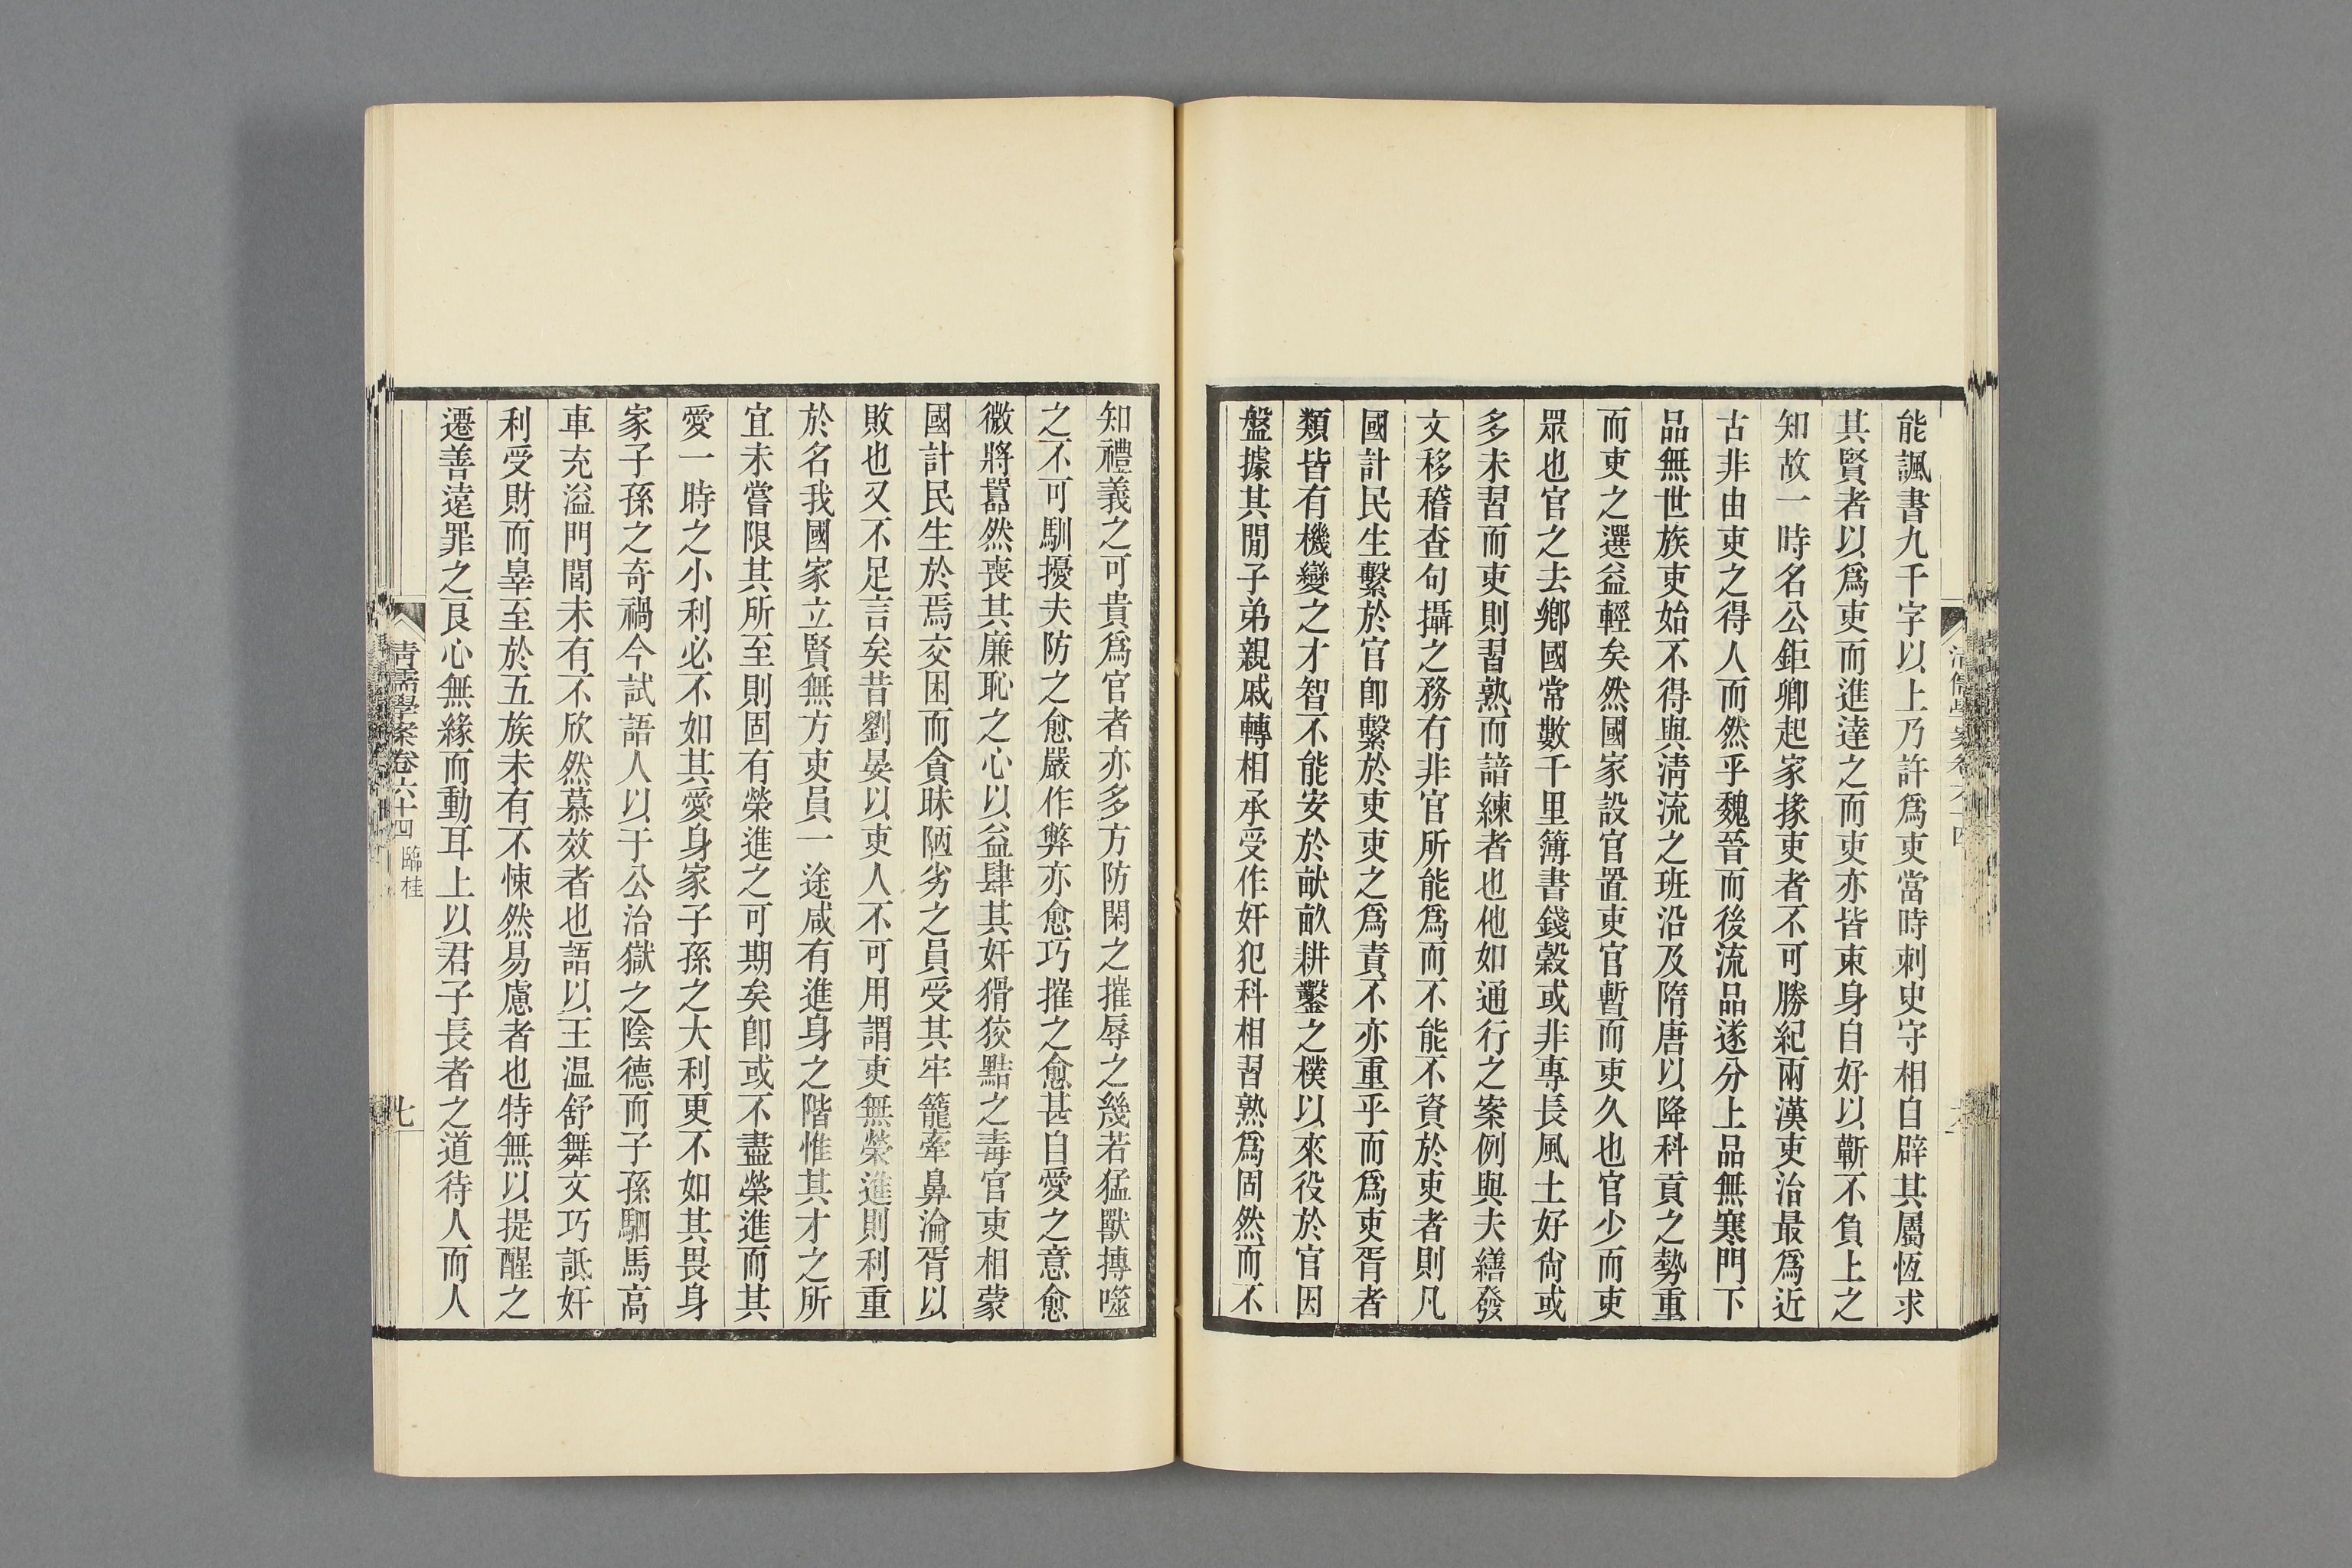 能諷書九千字以上乃許爲吏當時刺史守相自辟其屬恆求
其賢者以爲吏而進達之而吏亦皆束身自好以蘄不負上之
知故一時名公鉅卿起家掾吏者不可勝紀兩漢吏治最爲近
古非由吏之得人而然乎魏晉而後流品遂分上品無寒門下
品無世族吏始不得與淸流之班沿及隋唐以降科貢之勢重
而吏之選益輕矣然國家設官置吏官暫而吏久也官少而吏
眾也官之去鄉國常數千里簿書錢穀或非專長風土好尙或
多未習而吏則習熟而諳練者也他如通行之案例與夫繕發
文移稽查句攝之務有非官所能爲而不能不資於吏者則凡
國計民生繫於官卽繫於吏吏之爲責不亦重乎而爲吏胥者
類皆有機變之才智不能安於畎畝耕鑿之樸以來役於官因
盤據其閒子弟親戚轉相承受作奸犯科相習熟爲固然而不
知禮義之可貴爲官者亦多方防閑之摧辱之幾若猛獸搏噬
之不可馴擾夫防之愈嚴作弊亦愈巧摧之愈甚自愛之意愈
微將囂然喪其廉恥之心以益肆其奸猾狡黠之毒官吏相蒙
國計民生於焉交困而貪昧陋劣之員受其牢籠牽鼻淪胥以
敗也又不足言矣昔劉晏以吏人不可用謂吏無榮進則利重
於名我國家立賢無方吏員一途咸有進身之階惟其才之所
宜未嘗限其所至則固有榮進之可期矣卽或不盡榮進而其
愛一時之小利必不如其愛身家子孫之大利更不如其畏身
家子孫之奇禍今試語人以于公治獄之陰德而子孫駟馬高
車充溢門閭未有不欣然慕效者也語以王温舒舞文巧詆奸
利受財而辠至於五族未有不悚然易慮者也特無以提醒之
遷善遠罪之良心無緣而動耳上以君子長者之道待人而人
淸儒學案卷六十四 臨桂 七